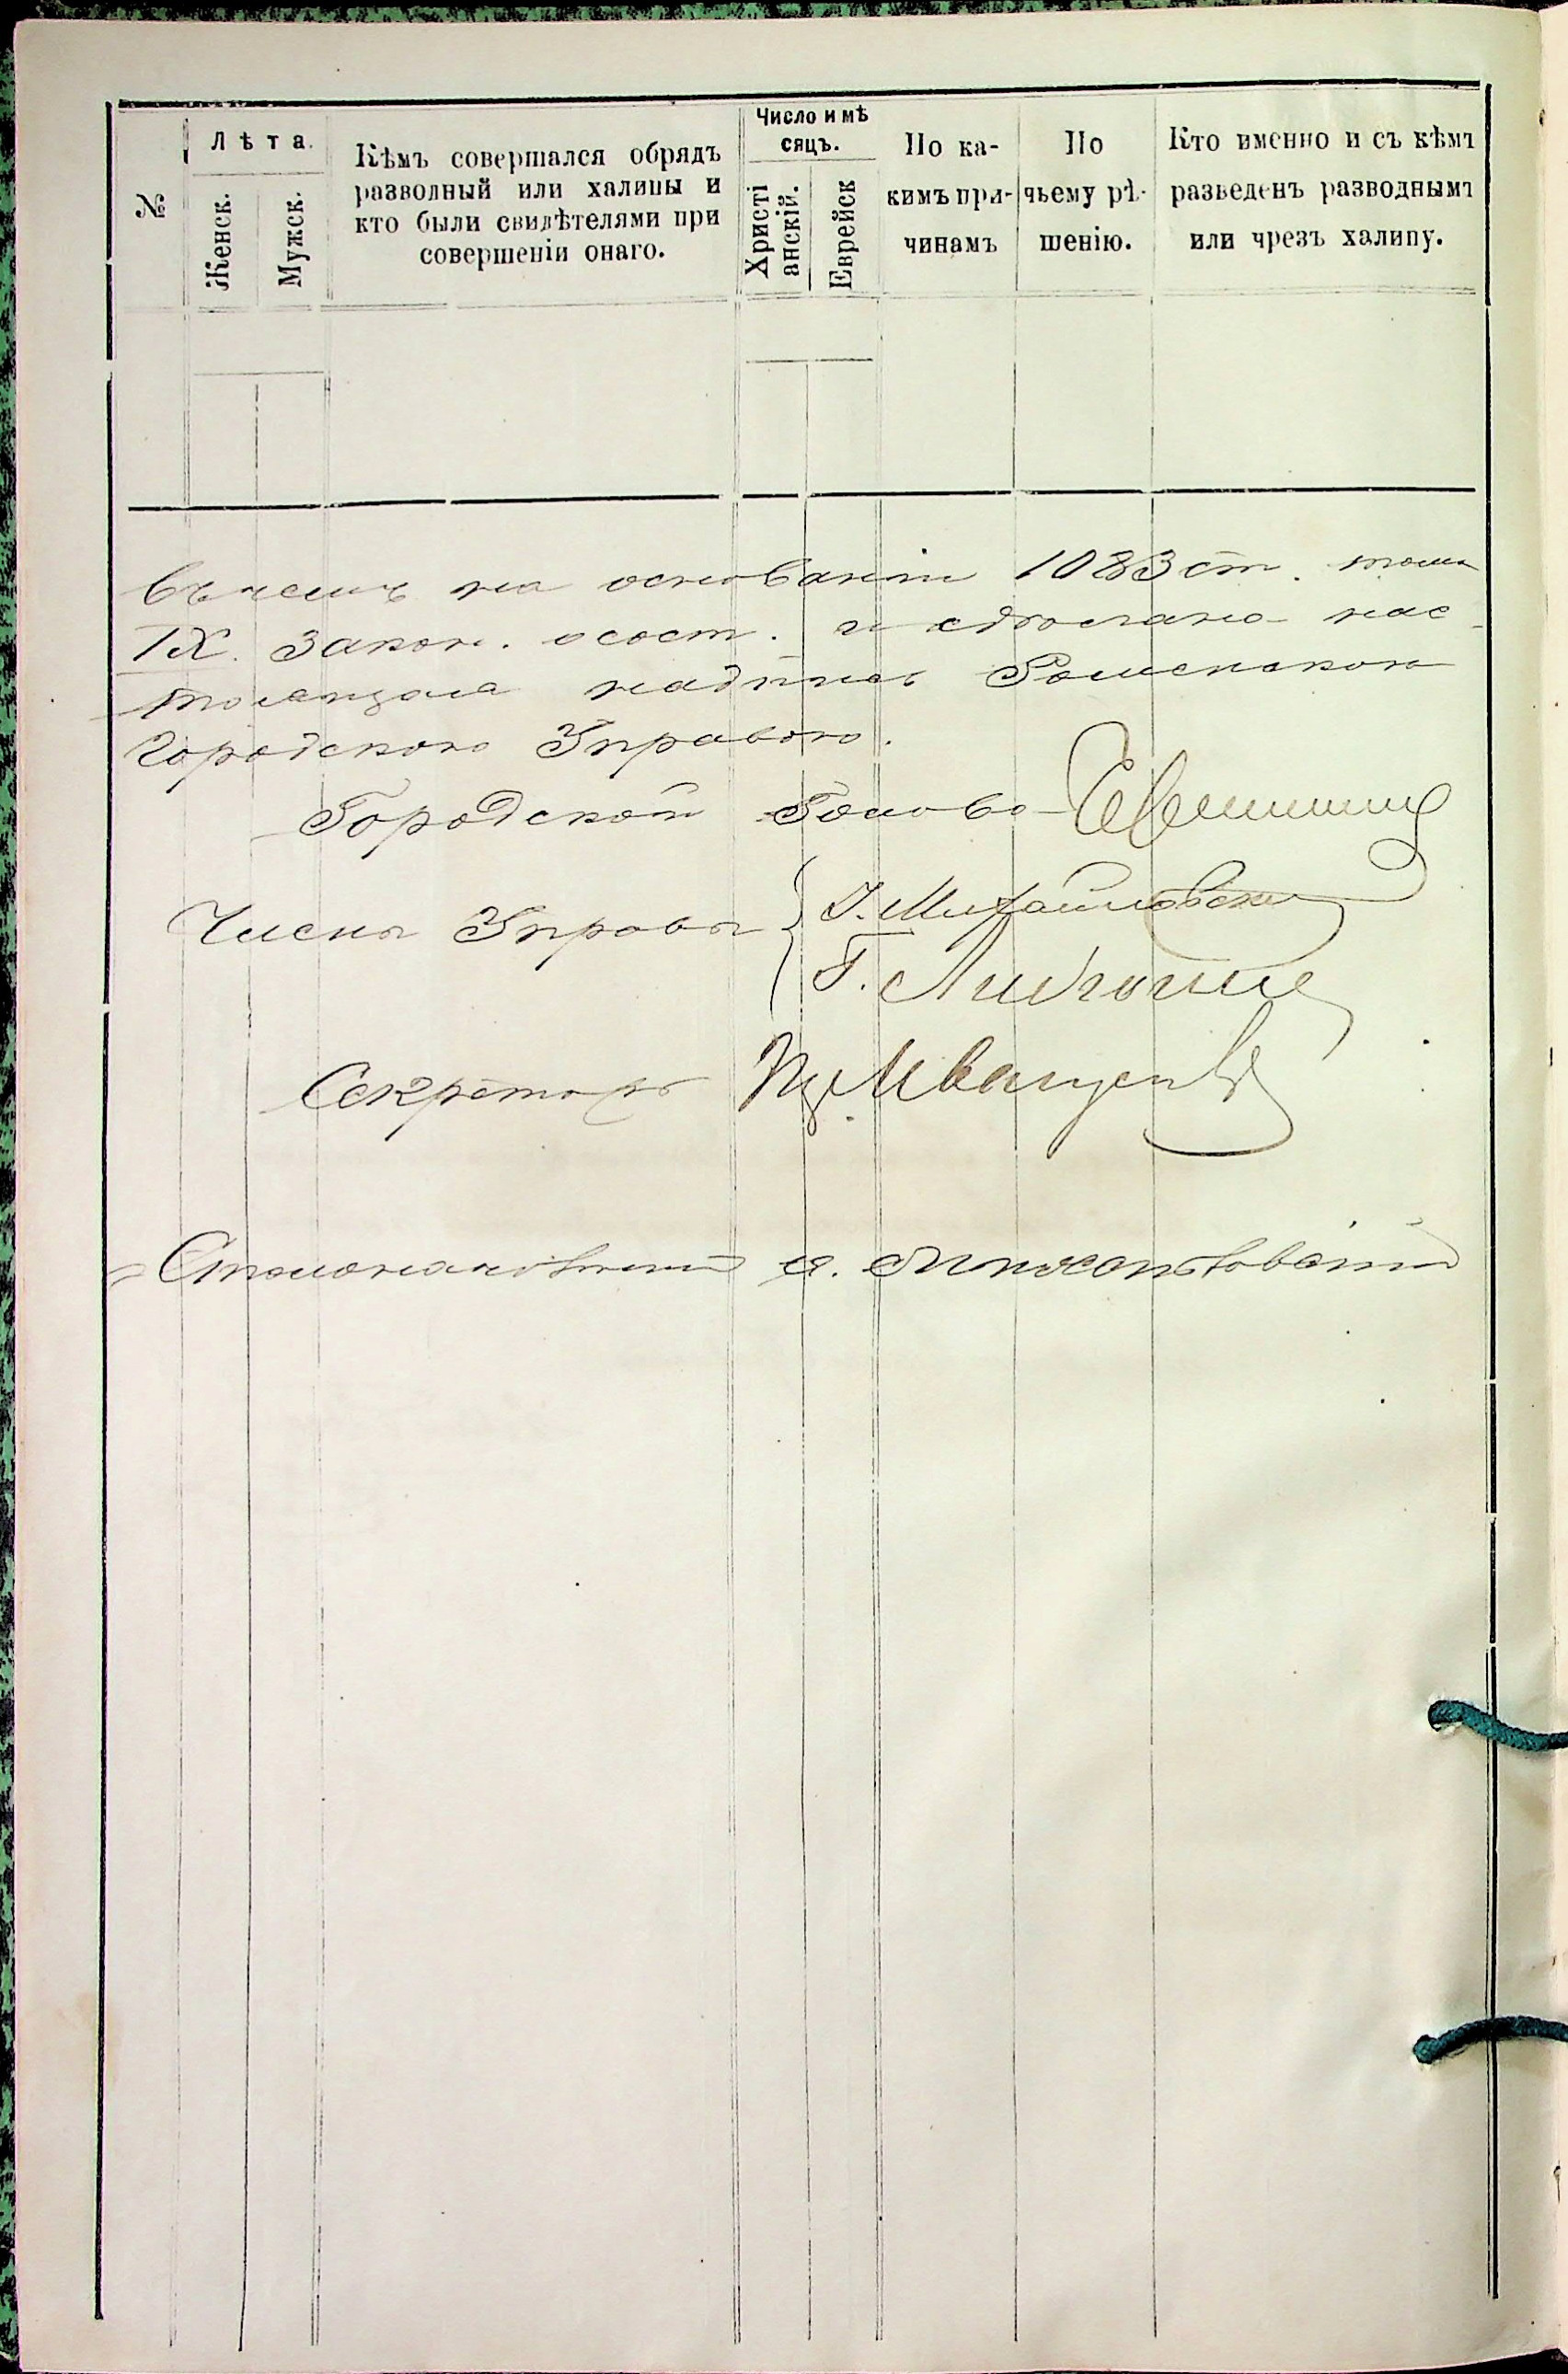 №
Лѣта.
Женск.
Мужск.
Кѣмъ совершался обрядъ
разводный или халицы и
кто были свидѣтелями при
совершеніи онаго.
Число и мѣ
сяцъ.
Христі
анскій.
Еврейск
По ка-
кимъ при-
чинамъ
По
чьему рѣ-
шенію.
Кто именно и съ кѣмъ
разведенъ разводнымъ
или чрезъ халицу.
въ чемъ на основаніи 1083 ст. тома
IX. Закон. о сост. и сдѣлана нас-
тоящая надпись Роменскою
Городскою Управою.
Городской Голова
Члены Управы
І. Михайловскій
Г.
Секретарь Иващенко
Столоначальникъ